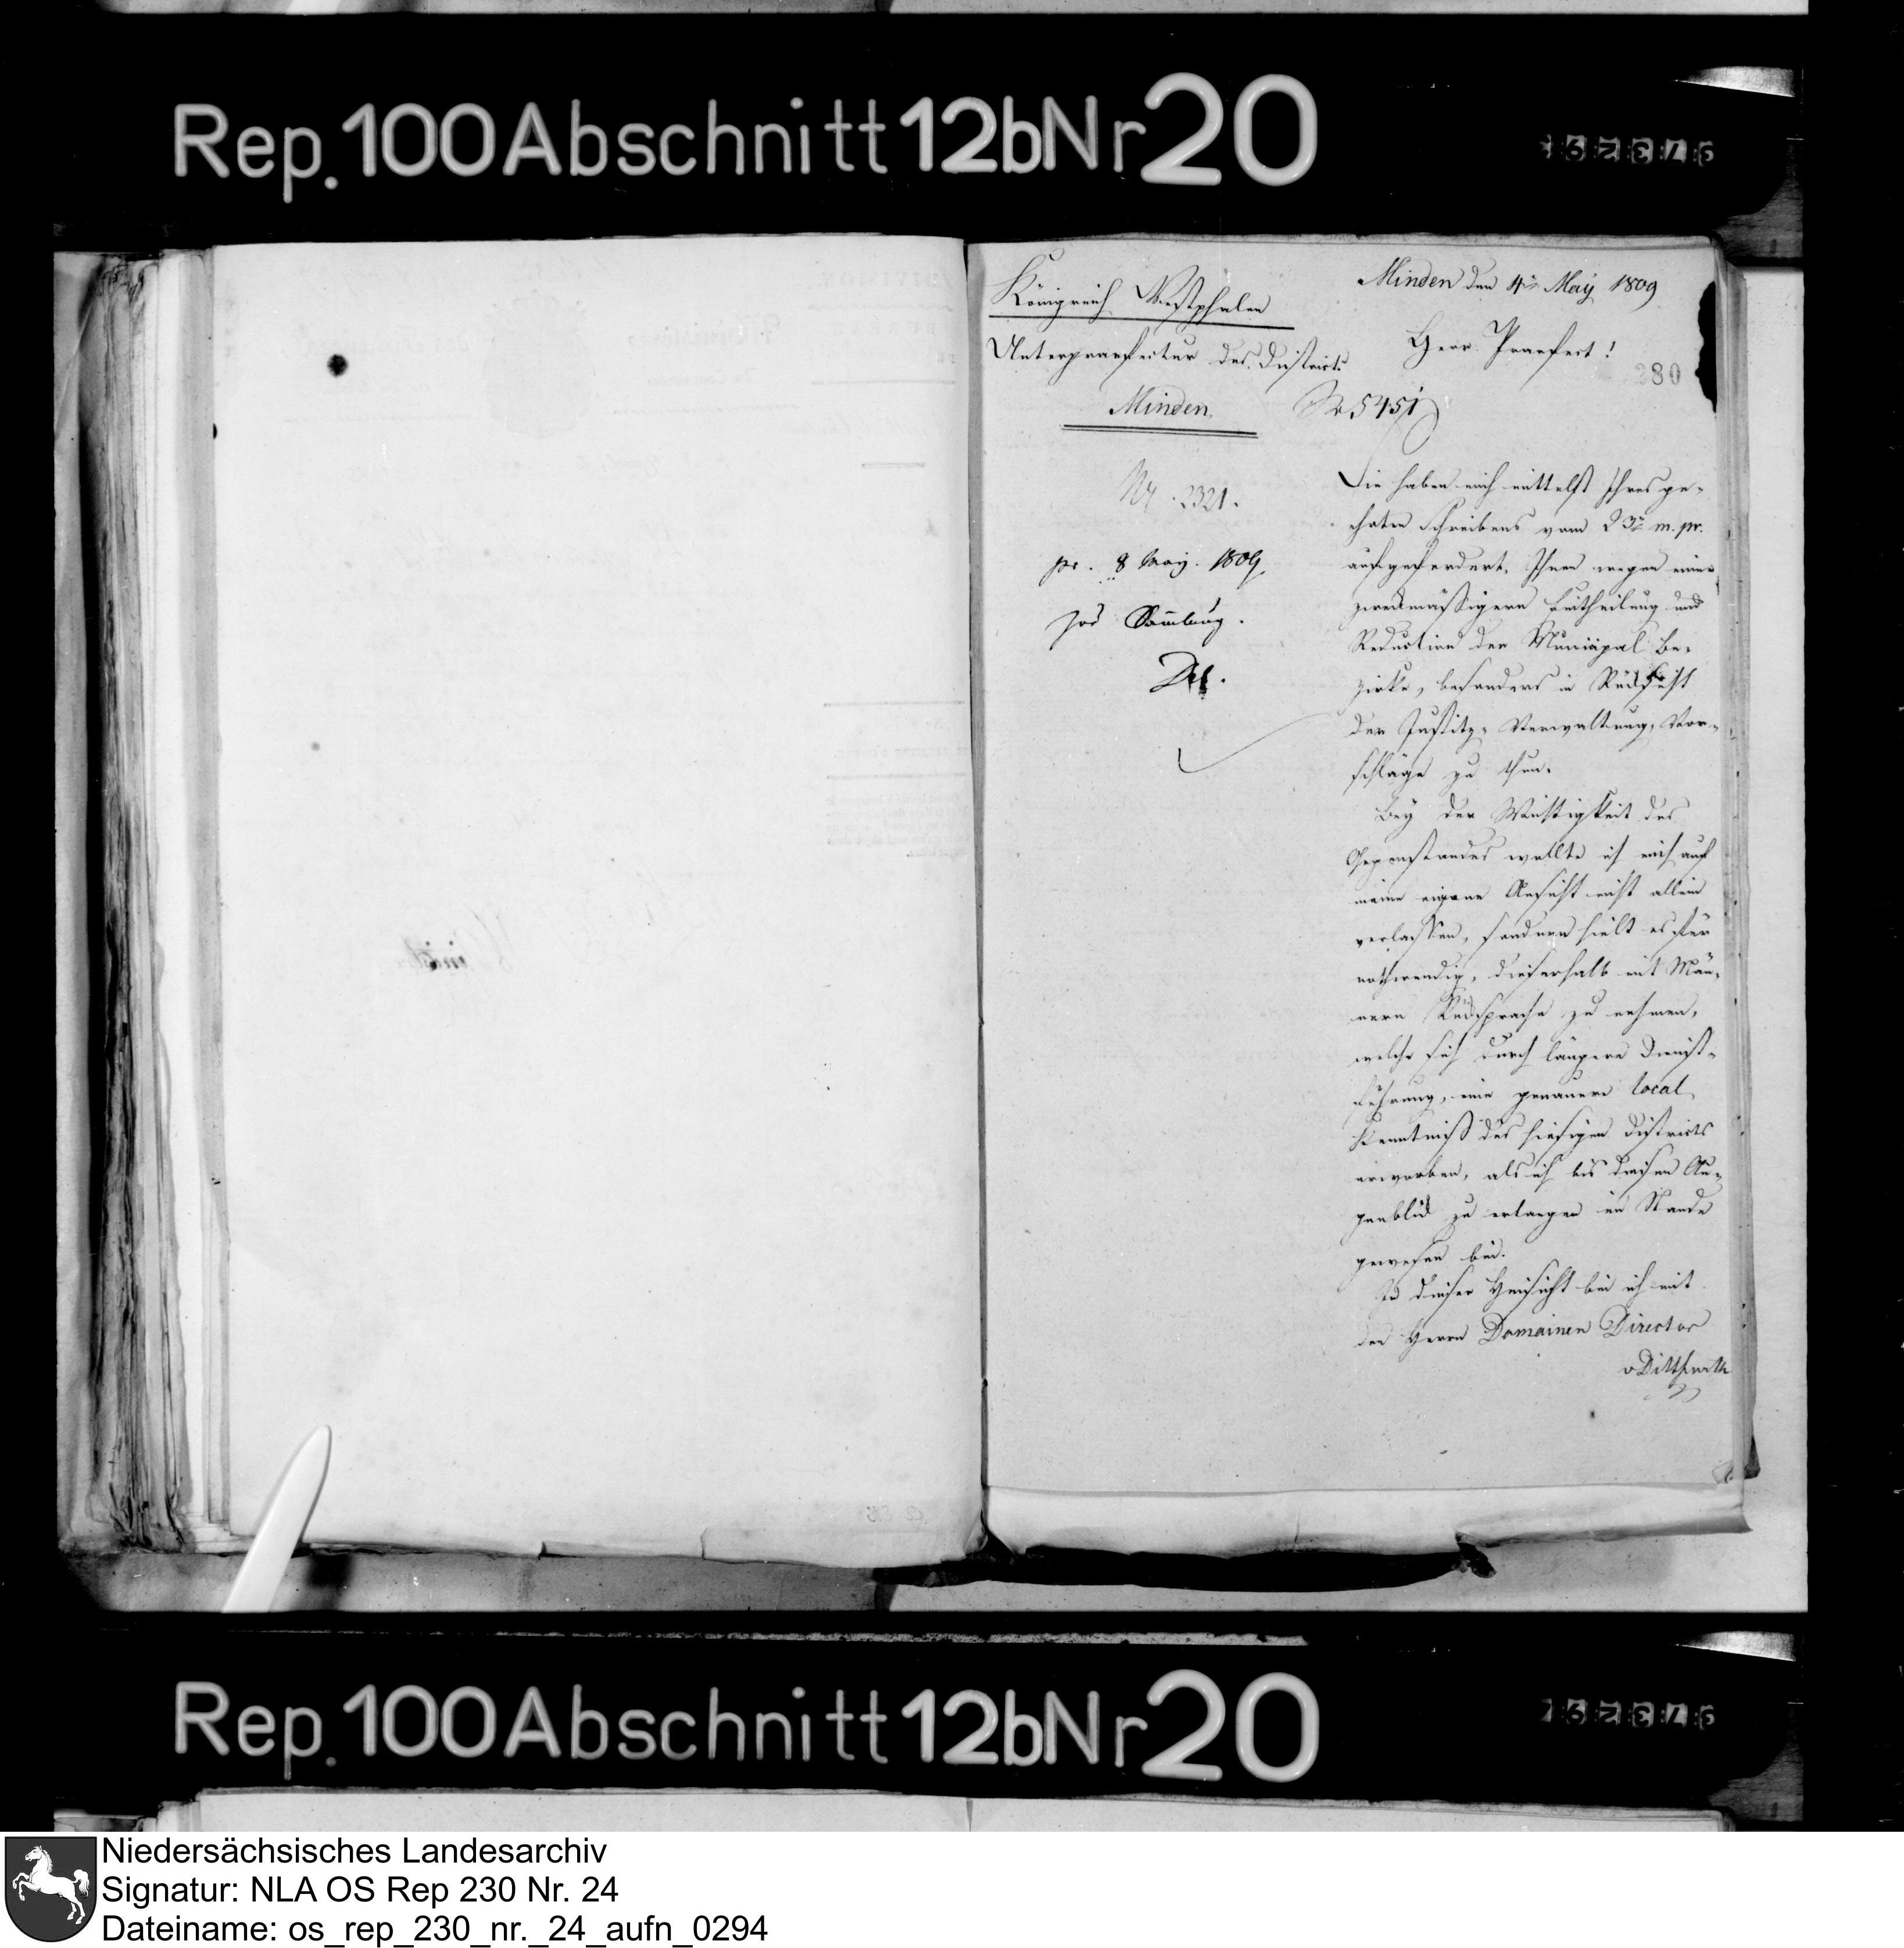 Rep. 100 Abschnitt 12b Nr 20
Königreich Westphalen
Unterpraefectur des Districts
Minden.
Minden den 4ten May 1809
Herr Praefect!
280
No 5451
Nr. 2321.
pr. 8 May. 1809
zur Samlung.
Sie haben mich mittelst Ihres ge-
ehrten Schreibens vom 23n m. pr.
aufgefordert, Ihnen wegen einer
zweckmäßigern Eintheilung und
Reduction der Municipal Be-
zirke, besonders in Rücksicht
der Justitz-Verwaltung, Vor-
schläge zu thun.
Bey der Wichtigkeit des
Gegenstandes wollte ich mich auf
meine eigene Ansicht nicht allein
verlassen, sondern hielt es für
nothwendig, dieserhalb mit Män-
nern Rücksprache zu nehmen,
welche sich durch längere Dienst-
führung, eine genauere local
Kenntniß des hiesigen Districts
erworben, als ich bis diesen Au-
genblick zu erlangen im Stande
gewesen bin.
In dieser Hinsicht bin ich mit
den Herrn Domainen Director
v Ditfurth
Rep. 100 Abschnitt 12b Nr 20
Niedersächsisches Landesarchiv
Signatur: NLA OS Rep 230 Nr. 24
Dateiname: os_rep_230_nr._24_aufn_0294